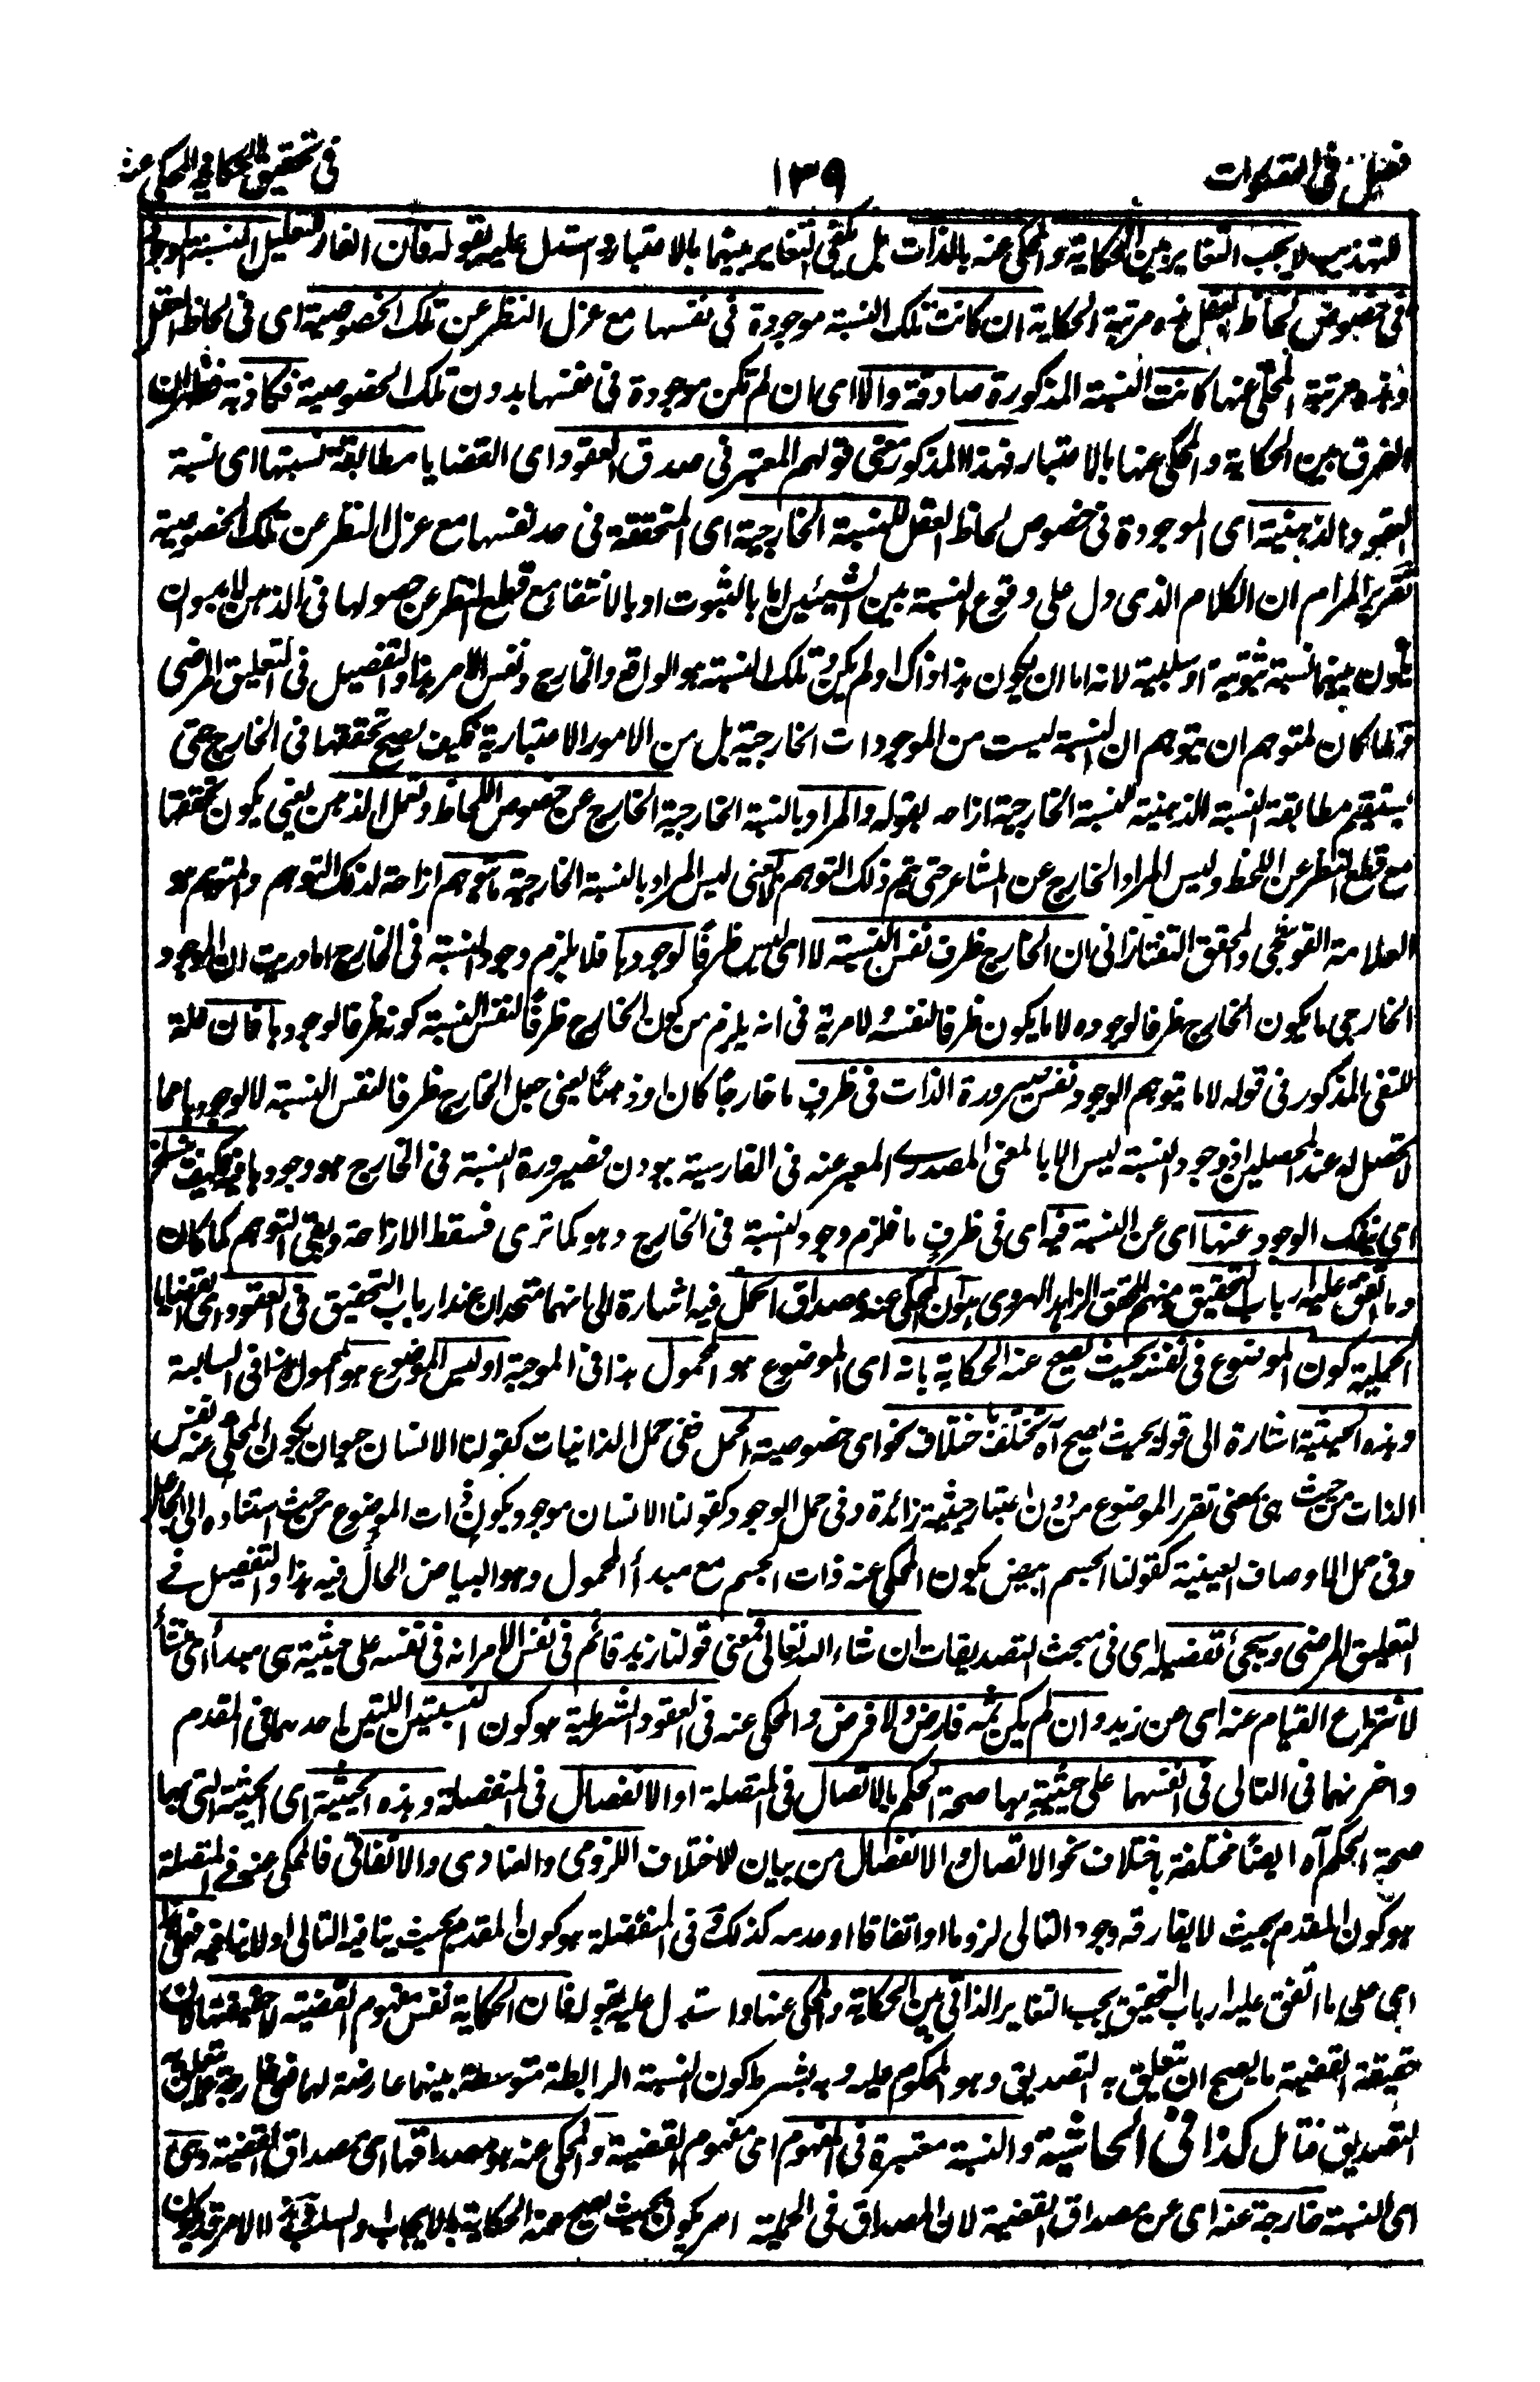 فصل فى التصورات
١٣٩
فى تحقيق الحكاية والمحكى عنه
التهذيب لا يجب التغاير بين الحكاية والمحكى عنه بالذات بل يكفى التغاير بينهما بالاعتبار واستدل عليه بقوله فان الفاء للتعليل النسبة الموجودة
فى خصوص لحاظ العقل هذه مرتبة الحكاية ان كانت تلك النسبة موجودة فى نفسها مع عزل النظر عن تلك الخصوصية اى فى لحاظ العقل
وهذه مرتبة المحكى عنها كانت النسبة المذكورة صادقة والا اى ان لم تكن موجودة فى نفسها بدون تلك الخصوصية فكاذبة فظهر ان
الفرق بين الحكاية والمحكى عنها بالاعتبار فهذا المذكور معنى قولهم المعتبر فى صدق العقود اى القضايا مطابقة نسبتها اى نسبة
العقود الذهنية اى الموجودة فى خصوص لحاظ العقل للنسبة الخارجية اى المتحققة فى حد نفسها مع عزل النظر عن تلك الخصوصية
تقرير المرام ان الكلام الذى دل على وقوع النسبة بين الشيئين اما بالثبوت او بالانتفاء مع قطع النظر عن حصولها فى الذهن لابد وان
تكون بينهما نسبة ثبوتية او سلبية لانه اما ان يكون هذا ذاك او لم يكن وتلك النسبة هو الواقع والخارج ونفس الامر هذا والتفصيل فى التعليق المرضى
ولما كان لمتوهم ان يتوهم ان النسبة ليست من الموجودات الخارجية بل من الامور الاعتبارية فكيف يصح تحققها فى الخارج حتى
يستقيم مطابقة النسبة الذهنية للنسبة الخارجية ازاحه بقوله والمراد بالنسبة الخارجية الخارج عن خصوص اللحاظ وتعمل الذهن يعنى يكون تحققها
مع قطع النظر عن اللحظ وليس المراد الخارج عن المشاعر حتى يتم ذلك التوهم لا يعنى ليس المراد بالنسبة الخارجية ما يتوهم ازاحة لذلك التوهم والمتوهم هو
العلامة القوشجى والمحقق التفتازانى ان الخارج ظرف نفس النسبة لا اى ليس ظرفًا لوجودها فلا يلزم وجود النسبة فى الخارج اما دريت ان الموجود
الخارجى ما يكون الخارج ظرفا لوجوده لا ما يكون ظرفا لنفسه ولا مرية فى انه يلزم من كون الخارج ظرفًا لنفس النسبة كونه ظرفا لوجودها فان علة
للنفى المذكور فى قوله لا ما يتوهم الوجود نفس صيرورة الذات فى ظرف ما خارجًا كان او ذهنًا يعنى جعل الخارج ظرفا لنفس النسبة لا لوجودها مما
لا تحصل له عند المحصلين اذ وجود النسبة ليس الا بالمعنى المصدرے المعبر عنه فى الفارسية ببودن فصيرورة النسبة فى الخارج هو وجودها فيه فكيف ينسلخ
اى ينفك الوجود عنها اى عن النسبة فيه اى فى ظرف ما فلزم وجود النسبة فى الخارج وهو كما ترى فسقط الازاحة وبقى التوهم كما كان
وما اتفق عليه ارباب التحقيق ومنهم المحقق الزاهد الهروى هو ان المحكى عنه ومصداق الحمل فيه اشارة الى انهما متحدان عند ارباب التحقيق فى العقود اى القضايا
الحملية كون الموضوع فى نفسه بحيث يصح عنه الحكاية بانه اى الموضوع هو المحمول هذا فى الموجبة او ليس الموضوع هو المحمول هذا فى السالبة
وهذه الحيثية اشارة الى قوله بحيث يصح آه تختلف باختلاف نحو اى خصوصية الحمل ففى حمل الذاتيات كقولنا الانسان حيوان يكون المحكى عنه نفس
الذات من حيث هى بمعنى تقرر الموضوع من دون اعتبار حيثية زائدة وفى حمل الوجود كقولنا الانسان موجود يكون ذات الموضوع من حيث استناده الى الجاعل
وفى حمل الاوصاف العينية كقولنا الجسم ابيض يكون المحكى عنه ذات الجسم مع مبدأ المحمول وهو البياض الحالّ فيه هذا والتفصيل فے
التعليق المرضى وسيجئ تفصيله اى فى مبحث التصديقات ان شاء الله تعالى فمعنى قولنا زيد قائم فى نفس الامر انه فى نفسه على حيثية هى مبدأ اى منشأ
لانتزاع القيام عنه اى عن زيد وان لم يكن ثمه فارض ولا فرض والمحكى عنه فى العقود الشرطية هو كون النسبتين اللتين احدهما فى المقدم
واخرىهما فى التالى فى انفسهما على حيثية بها صحة الحكم بالاتصال فى المتصلة او الانفصال فى المنفصلة وهذه الحيثية اى الحيثية التى بها
صحة الحكم آه ايضًا مختلفة باختلاف نحو الاتصال والانفصال من بيان للاختلاف اللزومى والعنادى والاتفاقى فالمحكى عنه فے المتصلة
هو كون المقدم بحيث لا يفارقه وجود التالى لزوما او اتفاقا او عدمه كذلك وفى المنفصلة هو كون المقدم بحيث ينافيه التالى او لا ينافيه فعلى هذا
اى على ما اتفق عليه ارباب التحقيق يجب التغاير الذاتى بين الحكاية والمحكى عنها واستدل عليه بقوله فان الحكاية نفس مفهوم القضية لا حقيقتها لان
حقيقة القضية ما يصح ان يتعلق به التصديق وهو المحكوم عليه وبه بشرط كون النسبة الرابطة متوسطة بينهما عارضة لهما فهى خارجة عما يتعلق به
التصديق فتامل كذا فى الحاشية والنسبة معتبرة فى المفهوم اى مفهوم القضية والمحكى عنه هو مصداقها اى مصداق القضية وهى
اى النسبة خارجة عنه اى عن مصداق القضية لان المصداق فى الحملية امر يكون بحيث يصح عنه الحكاية بالايجاب والسلب